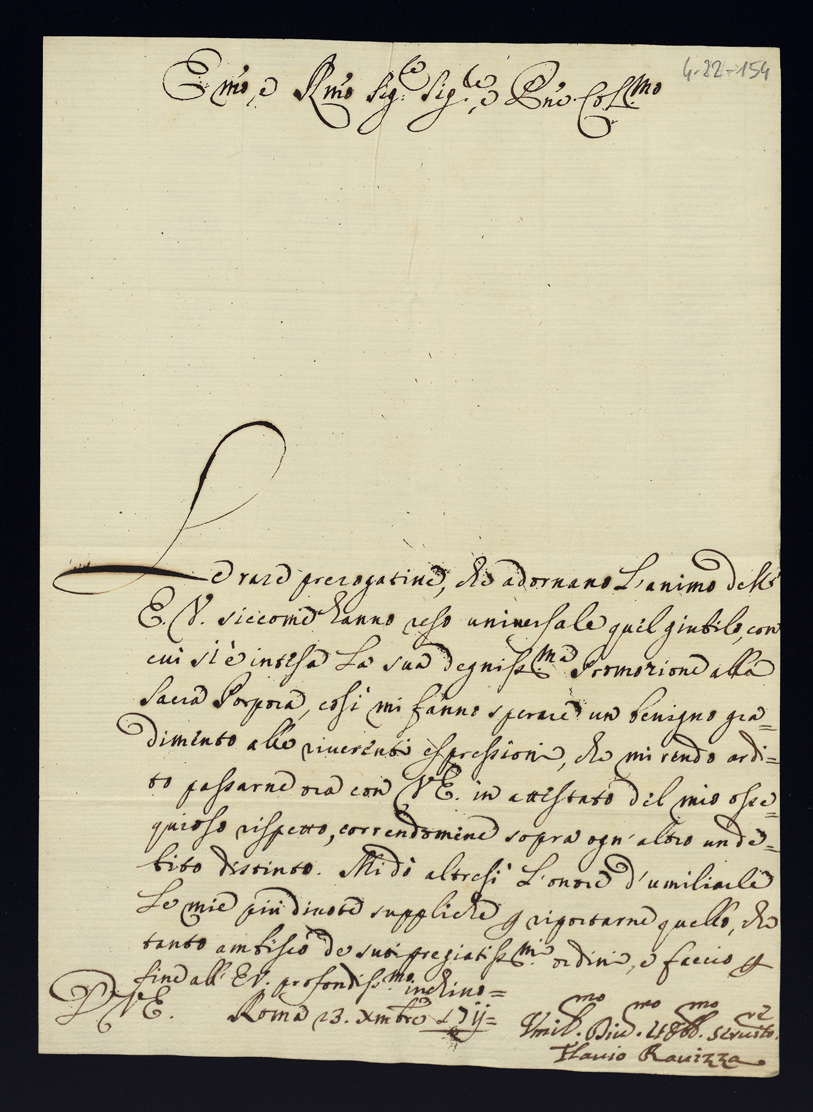 4-22-154
Emo, e Rmo Sig.re Sig.re, e Pne Coll.mo
Le rare prerogative, che adornano L'animo dell'
E. V. siccome hanno reso universale quel giubilo, con
cui si è intesa La sua degniss.ma Promozione alla
Sacra Porpora, così mi fanno sperare un benigno gra=
dimento alle riverenti espressioni, che mi rendo ardi=
to passarne ora con V.E. in attestato del mio osse=
quioso rispetto, correndomene sopra ogn'altro un de=
bito distinto. Mi dò altresì L'onore d'umiliarle
Le mie più divote suppliche p riportarne quello, che
tanto ambisco de suoi pregiatiss.mi ordini, e faccio p
fine all'E.V. profondiss.mo inchino=
D V.E. Roma 13. Xmbre 17
Umil.mo Div.mo Obb.mo Servito.re
Flavio Ravizza